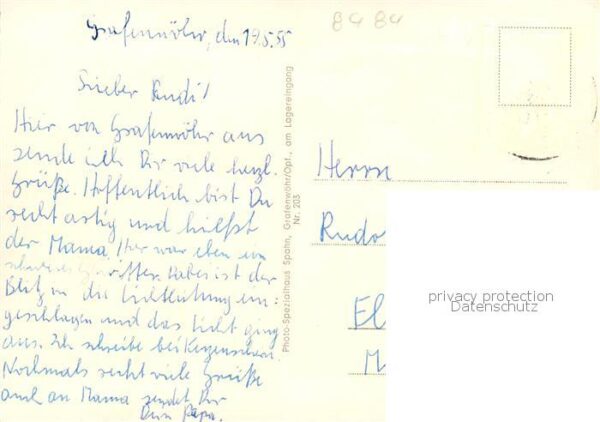 84 84
Grafenwöhr, den 19.5.55
Lieber Rudi!
Hier von Grafenwöhr aus
sende ich Dir viele herzl.
Grüße. Hoffentlich bist Du
recht artig und hilfst
der Mama. Hier war eben ein
schweres Gewitter. Dabei ist der
Blitz in die Lichtleitung ein-
geschlagen und das Licht ging
aus. Ich schreibe bei Kerzenschein.
Nochmals recht viele Grüße
auch an Mama sendet Dir
Dein Papa.
Photo-Spezialhaus Spahn, Grafenwöhr/Opf., am Lagereingang
Nr. 203
Herrn
Rudo
El
M
privacy protection
Datenschutz